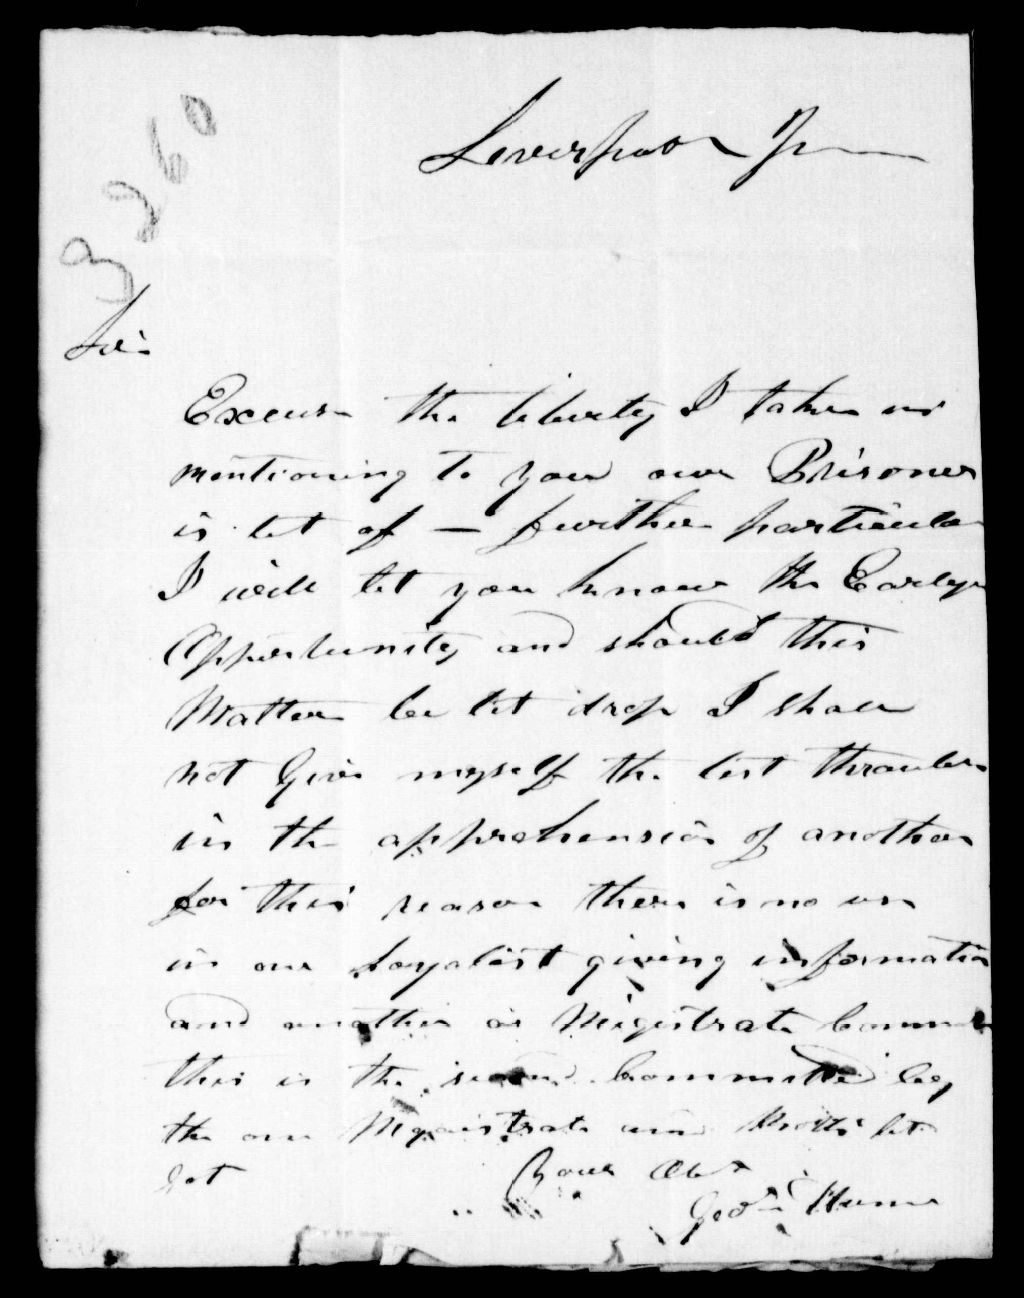 3260
Liverpool
Sir
Excuse the liberty I take in
mentioning to you our Prisoner
is let of — further particular
I will let you know the Earlys
Opportunity and should this
Matter be let drop I shall
not Give myself the lest throuble
in the apprehension of another
for this reason there is no use
in one Loyalist giving information
and another as Migistrate
this is the second Committed by
the one Mgaistrate and let
Your Obt
Geo Hume